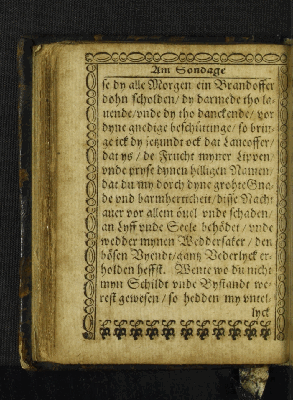 Am Sondage
se dy alle Morgen ein Brandoffer
dohn scholden / dy darmede tho la-
uende / vnde dy tho danckende / vor
dyne gnedige beschüttinge / so brin-
ge ick dy jetzundt ock dat Lanoffer /
dat ys / de Frucht myner Lippen
vnde pryse dynen hilligen Namen /
dat du my dorch dyne grohte Gna-
de vnd barmherticheit / disse Nacht
auer vor allem övel vnde schaden /
an Lyff vnde Seele behödet / vnde
wedder mynen Weddersaker / den
bösen Vyendt / gantz Vederlyck er-
holden heffst. Wente wo du nicht
myn Schildt vnde Bystandt we-
rest gewesen / so hedden my vntel-
lyck